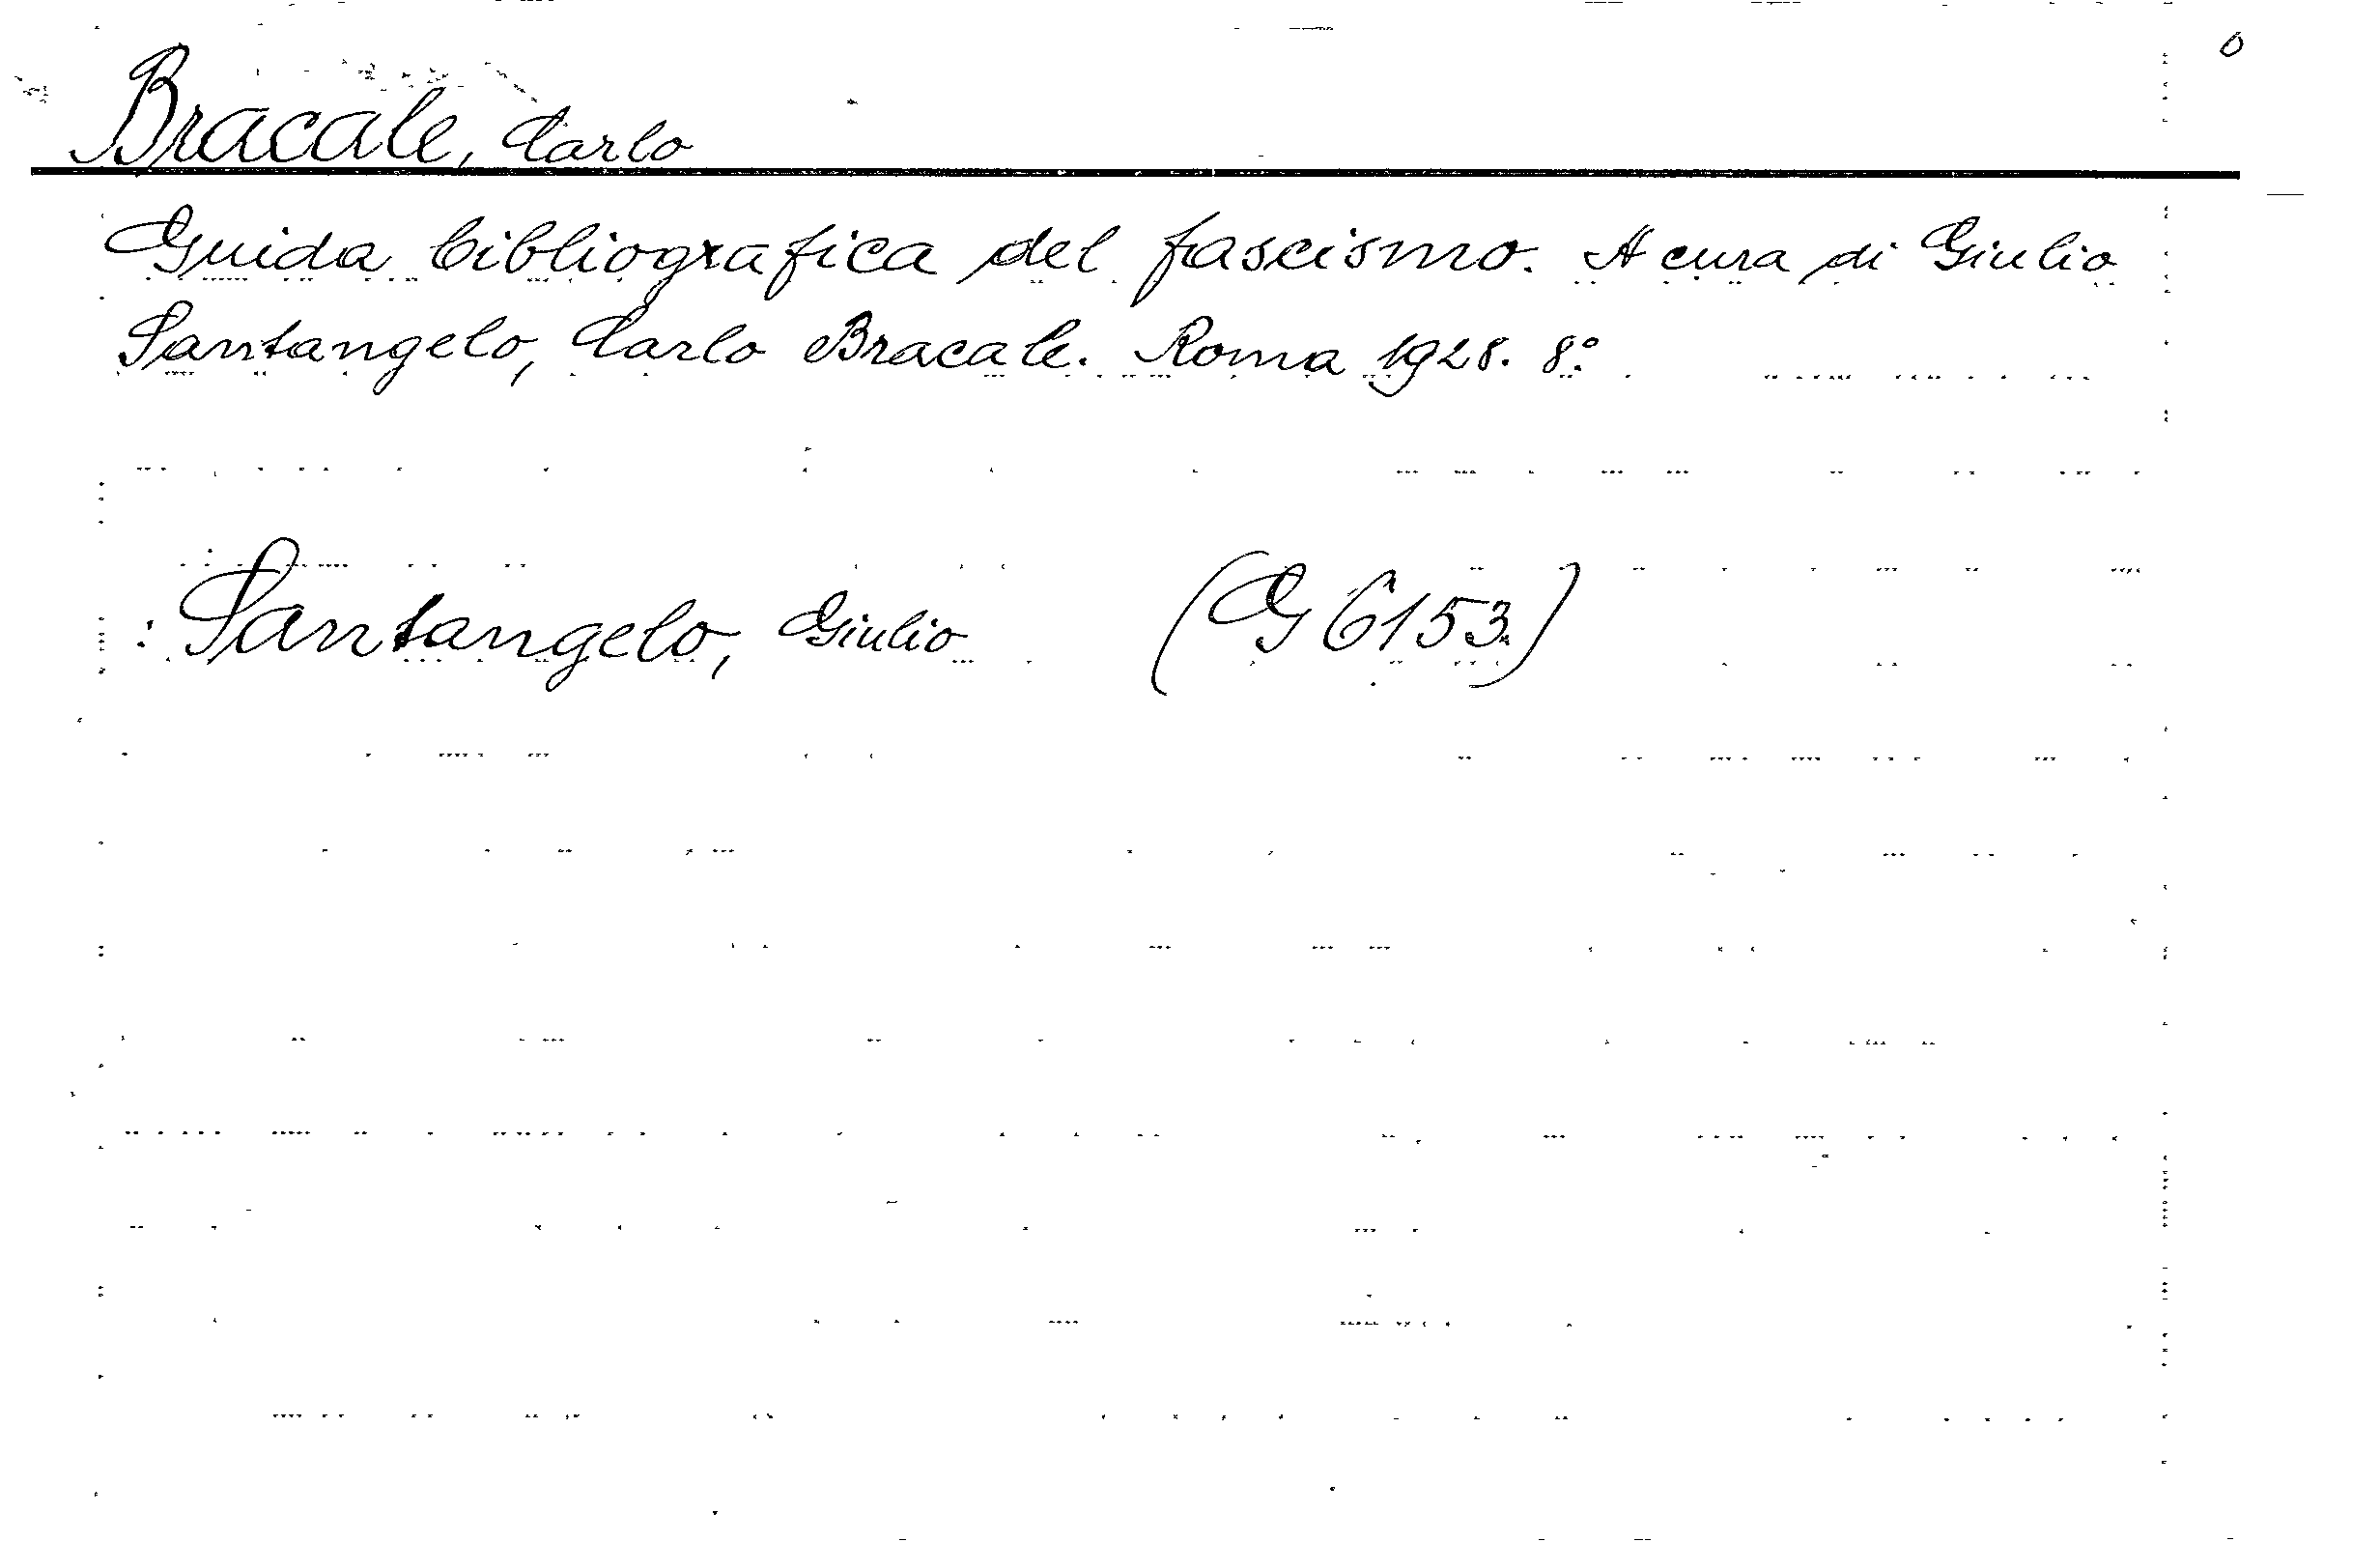 Bracale, Carlo
Guida bibliografica del fascismo. A cura di Giulio
Santangelo, Carlo Bracale. Roma 1928. 8°.
: Santangelo, Giulio (G 6153.)